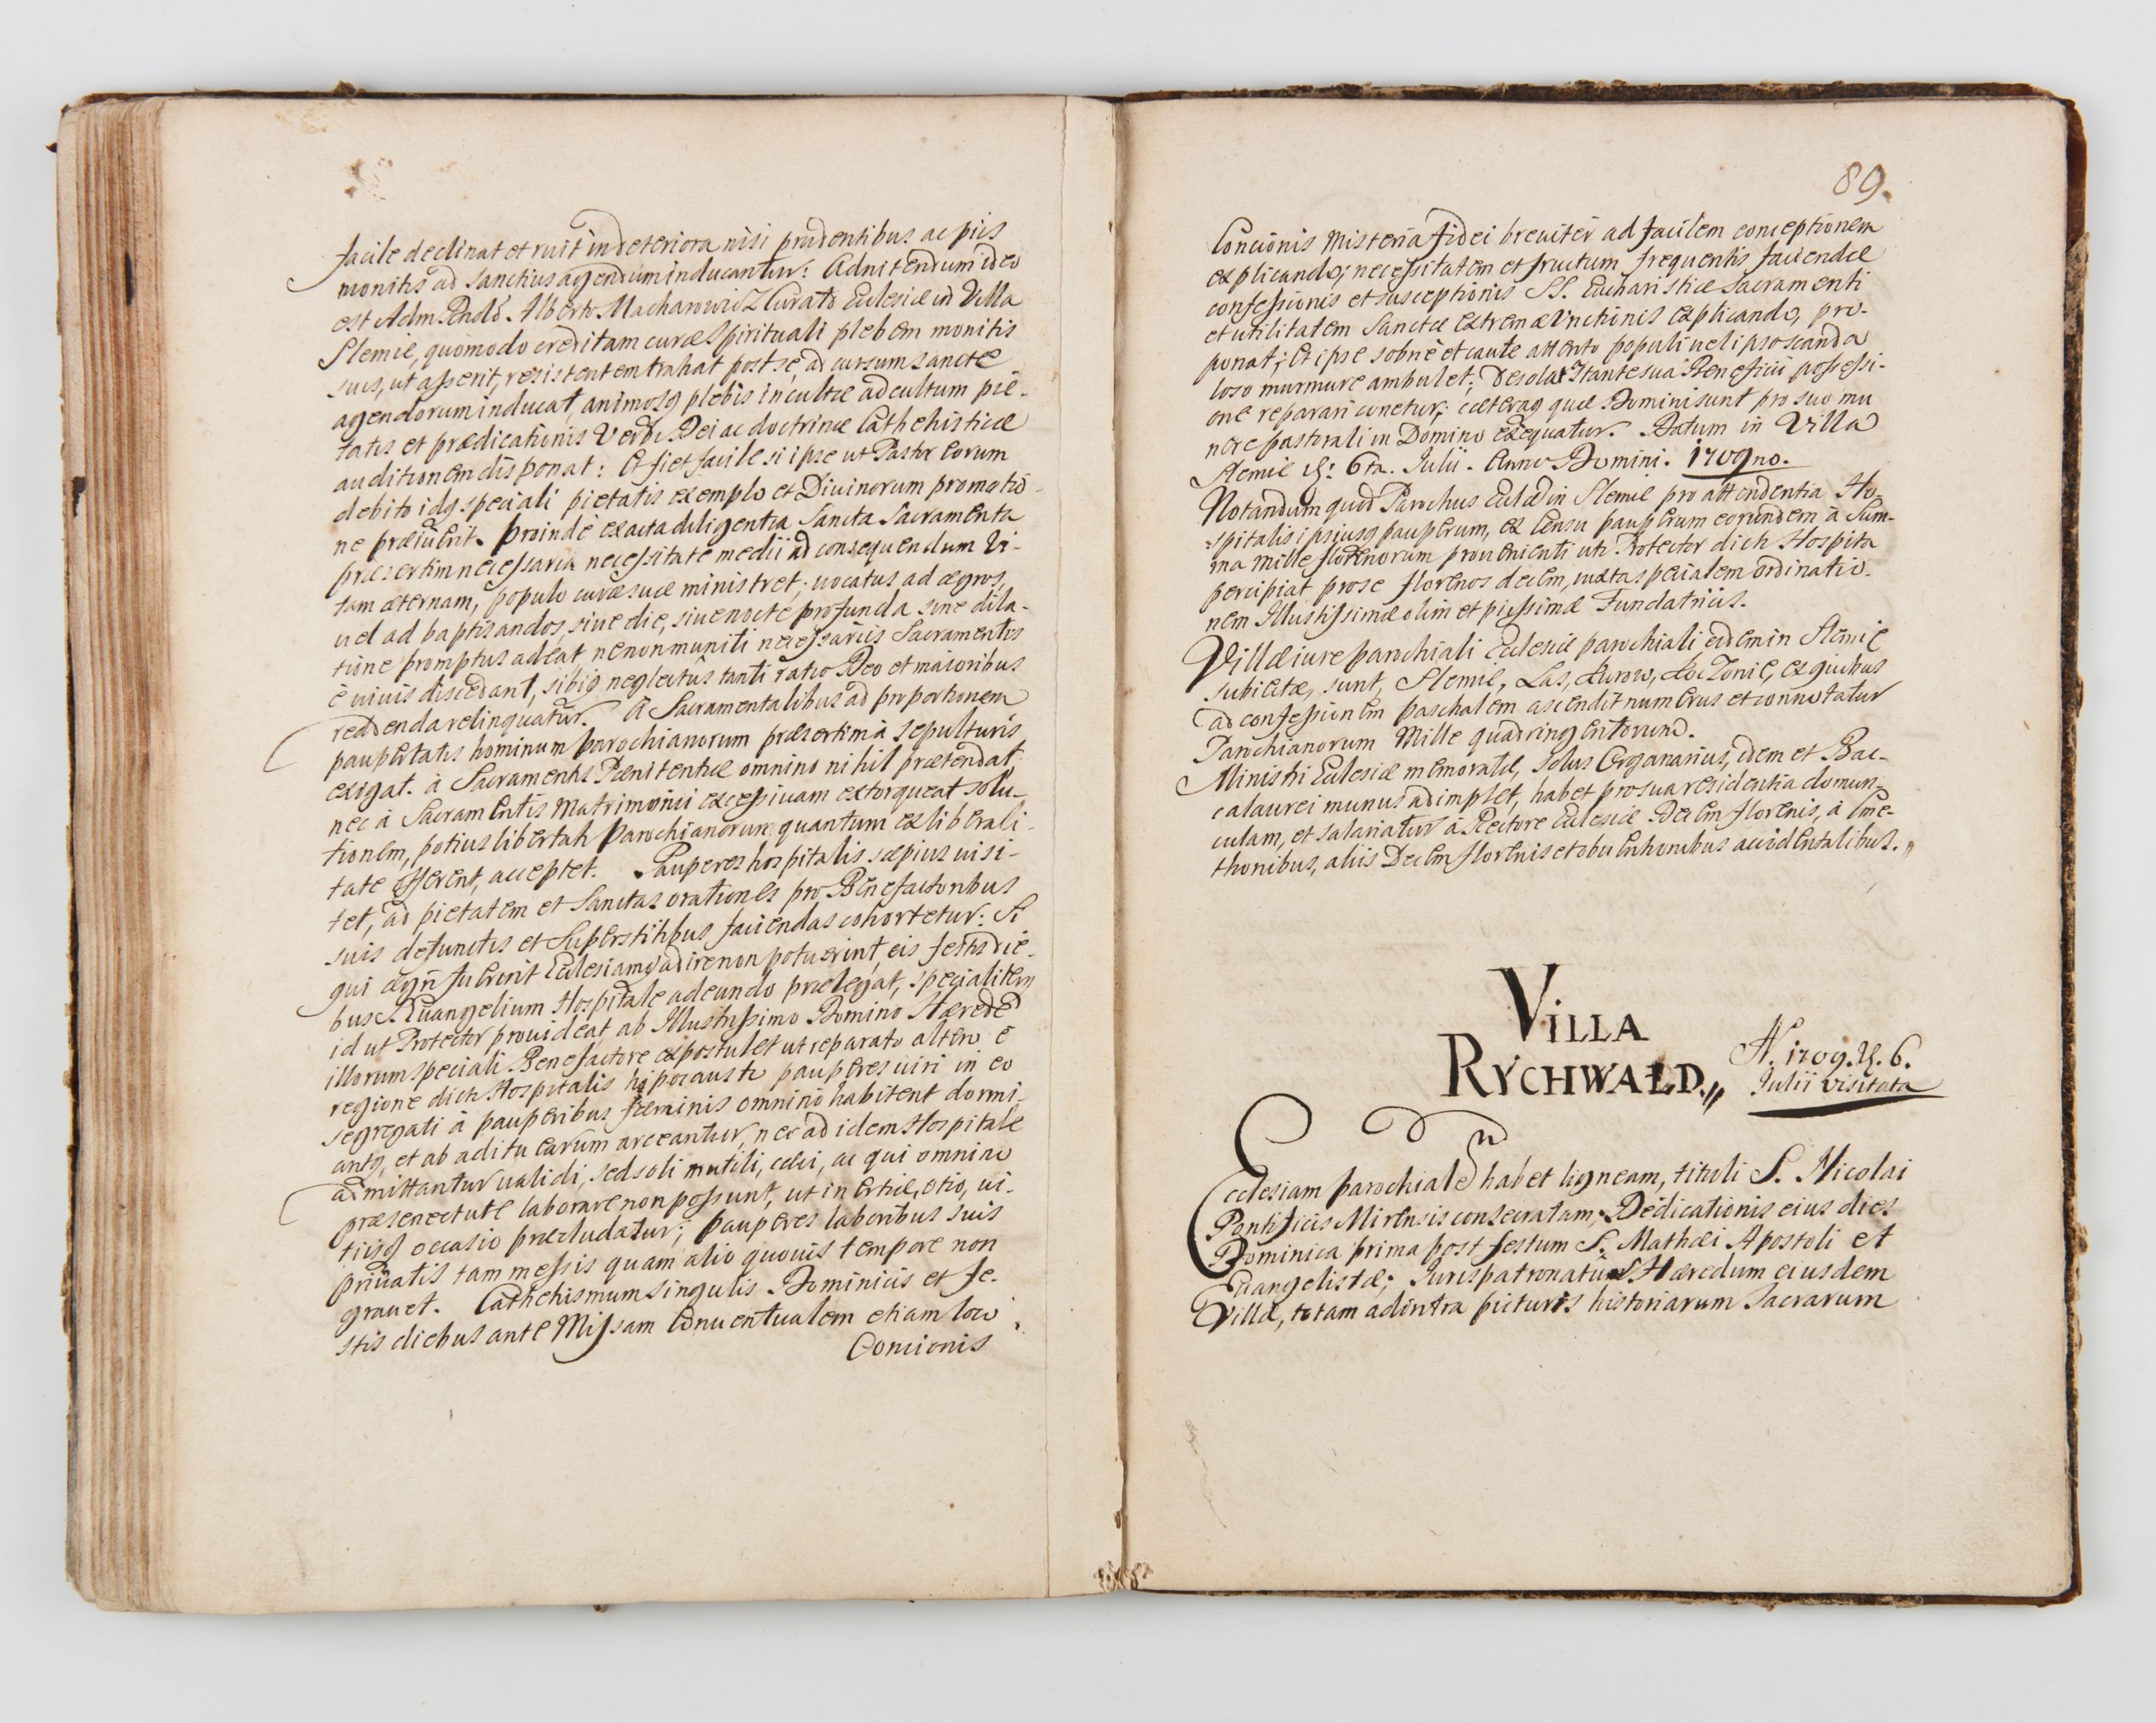 facile declinat et ruit in deteriora nisi prudentibus ac piis
monitis ad sanctius agendum inducantur: Adnitendum ideo
est Adm. Rndo. Alberto Macharowicz Curato Eclesiæ in Villa
Slemie, quomodo creditam curæ Spirituali plebem monitis
suis, ut asserit, resistentem trahat post se, ad cursum sancte
agendorum inducat, animosq plebis incultæ ad cultum pie-
tatis et prædicationis Verbi Dei ac doctrinæ Cathehisticæ
auditionem disponat: Et fiet facile si ipse ut Pastor eorum
debito idq speciali pietatis exemplo et Diuinorum promotio-
ne præiuerit. Proinde exacta diligentia Sancta Sacramenta
præsertim necessaria necessitate medii ad consequendum Vi-
tam æternam, populo curæ suæ ministret; uocatus ad ægros,
uel ad baptisandos, siue die, siue nocte profunda sine dila-
tione promptus adeat, ne non muniti necessariis Sacramentis
è uiuis discedant, sibiq neglectûs tanti ratio Deo et maioribus
reddenda relinquatur. A Sacramentalibus ad proportionem
paupertatis hominum parochianorum præsertim à sepulturis
exigat. à Sacramentis Pænitentiæ omnino nihil prætendat,
nec à Sacramentis Matrimonii excessiuam extorqueat solu-
tionem, potius libertati Parochianorum quantum ex liberali-
tate offerent, acceptet. Pauperes hospitalis sæpius uisi-
tet, ad pietatem et Sanctas orationes pro Benefactoribus
suis defunctis et Superstitibus faciendas cohortetur: Si
qui ægri fuerint Eclesiamq adire non potuerint, eis festis die-
bus Euangelium Hospitale adeundo prælegat, specialiter
id ut Protector prouideat, ab Illustrissimo Domino Hærede
illorum speciali Benefactore expostulet ut reparato altero è
regione dicti Hospitalis hipocausto pauperes uiri in eo
segregati à pauperibus fæminis omnino habitent dormi-
antq, et ab aditu earum arceantur, nec ad idem Hospitale
admittantur ualidi, sed soli mutili, cæci, ac qui omnino
præ senectute laborare non possunt, ut inertiæ, otio, ui-
tiisq occasio præcludatur; pauperes laboribus suis
priuatis tam messis quam alio quouis tempore non
grauet. Cathehismum singulis Dominicis et fe-
stis diebus ante Missam Conuentualem etiam loco
Concionis
89.
Concionis Misteria fidei breuiter ad facilem conceptionem
explicando; necessitatem et fructum frequentis faciendæ
confessionis et susceptionis SS. Eucharistiæ Sacramenti
et utilitatem Sanctæ extremæ Vnctionis explicando, pro-
ponat; Et ipse sobriè et caute attento populi uel ipso scanda
loso murmure ambulet; Desolat Itantes uâ Beneficii possessi-
one reparari conetur; cæteraq quæ Domini sunt pro suo mu
nere pastorali in Domino exequatur. Datum in Villa
Slemie d: 6ta. Julii. Anno Domini. 1709no.
Notandum quod Parochus Eclæ in Slemie pro attendentia Ho-
spitalis ipsiusq pauperum, ex Censu pauperum eorundem à Sum-
ma mille florenorum prouenienti uti Protector dicti Hospita
percipiat pro se florenos decem, iuxta specialem ordinatio-
nem Illustrissimæ olim et piissimæ Fundatricis.
Villæ iure parochiali Eclesiæ parochiali eidem in Slemie
subiectæ, sunt, Slemie, Las, Kurow, Koczonie, ex quibus
ad confessionem paschalem ascendit numerus et connotatur
Parochianorum Mille quadringentorum.
Ministri Eclesiæ memoratæ, solus Organarius, idem et Bac-
calaurei munus adimplet, habet pro sua residentia domun-
culam, et salariatur à Rectore Eclesiæ Decem florenis, à Cme-
thonibus, aliis Decem florenis et obuentionibus accidentalibus.
VILLA
RYCHWAŁD.
A. 1709. d. 6.
Julii visitata
Ecclesiam parochialem habet ligneam, tituli S. Nicolai
Pontificis Mirensis consecratam; Dedicationis eius dies
Dominica prima post festum S. Mathæi Apostoli et
Euangelistæ; Iurispatronatûs Hæredum eiusdem
Villæ, totam ad intra picturis historiarum Sacrarum